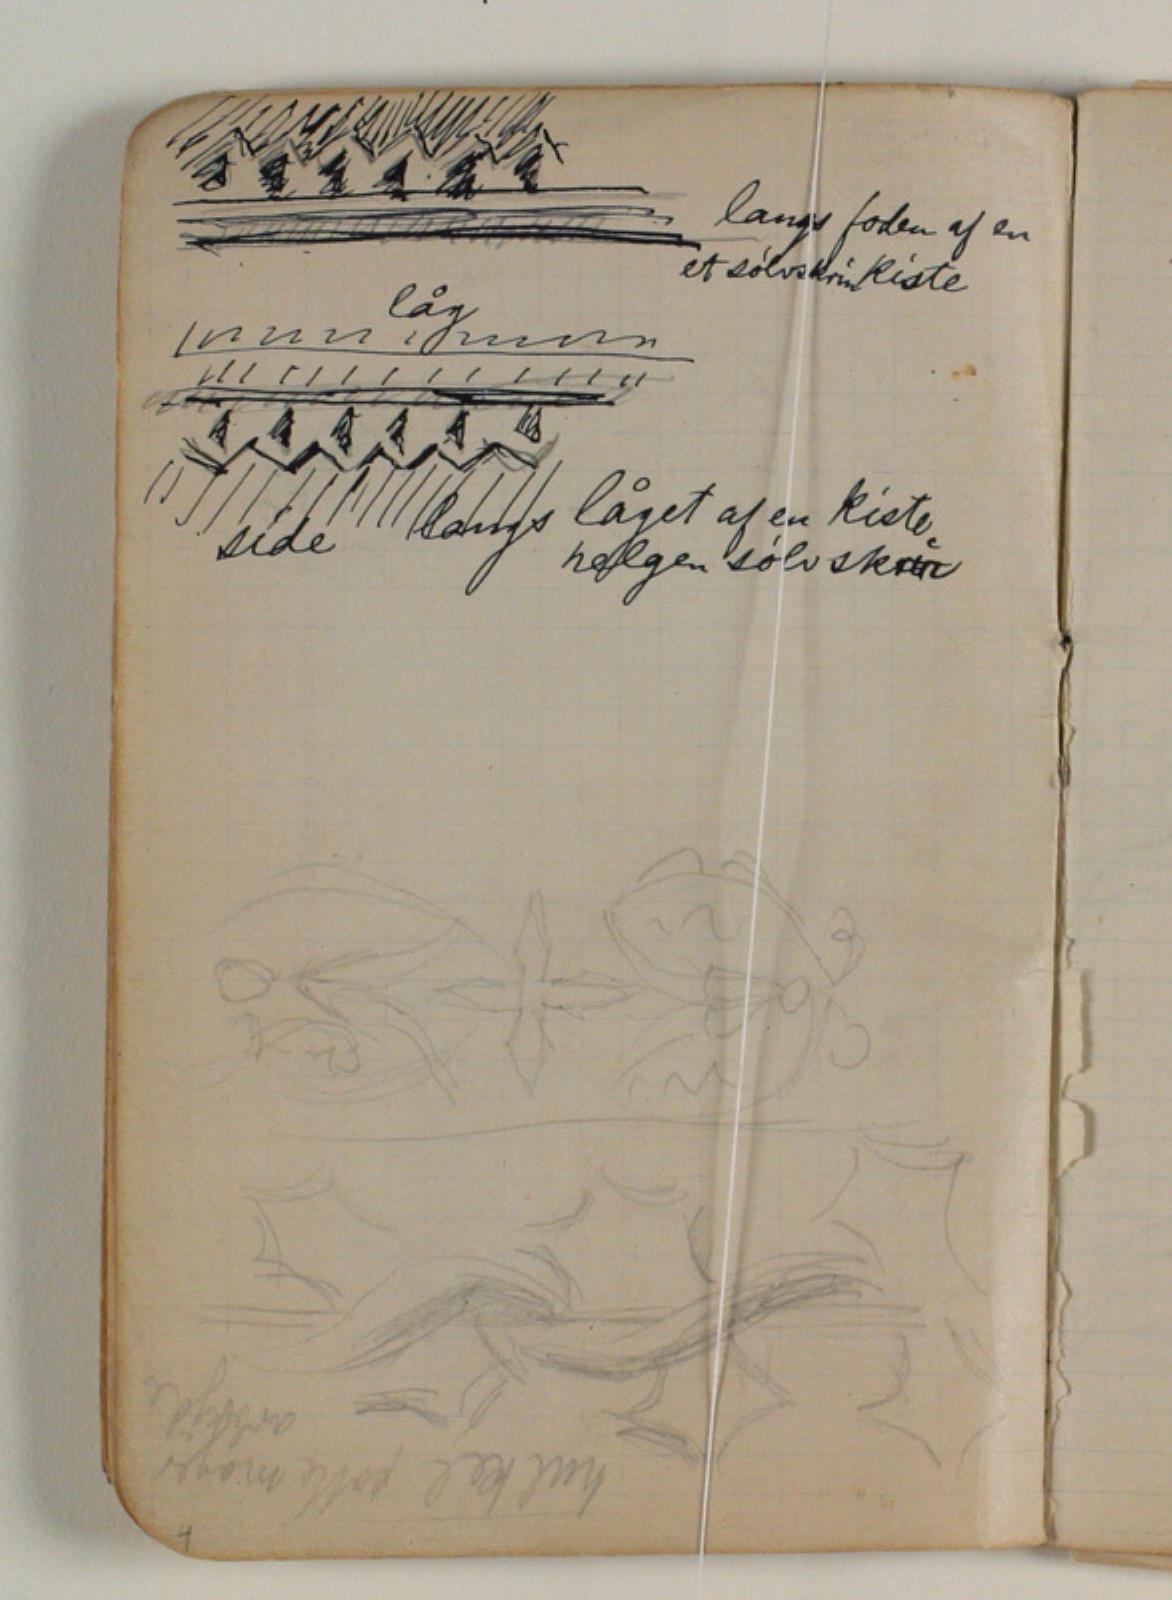 langs foden af en
et sølvskrin kiste
låg
side
langs låget af en kiste
helgen sølvskrin
4